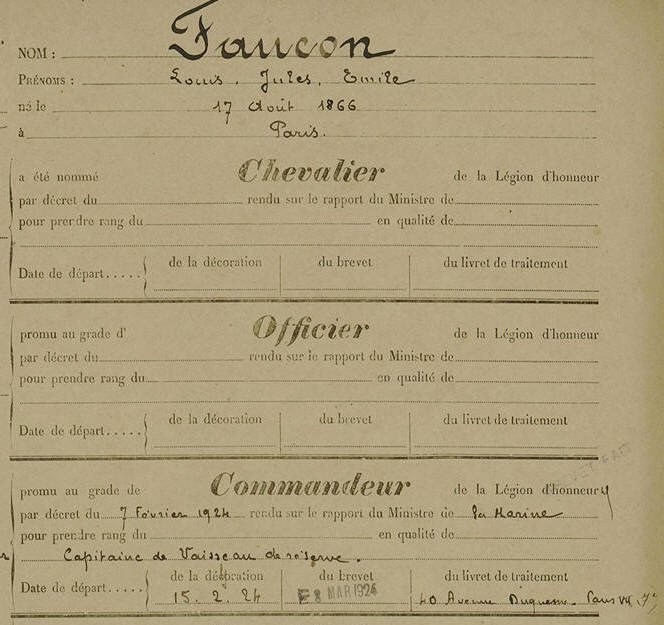 NOM : Faucon
PRÉNOMS : Louis, Jules, Emile
né le 17 Août 1866
à Paris.
a été nommé Chevalier de la Légion d'honneur
par décret du rendu sur le rapport du Ministre de
pour prendre rang du en qualité de
Date de départ..... de la décoration du brevet du livret de traitement
promu au grade d' Officier de la Légion d'honneur
par décret du rendu sur le rapport du Ministre de
pour prendre rang du en qualité de
Date de départ..... de la décoration du brevet du livret de traitement
promu au grade de Commandeur de la Légion d'honneur
par décret du 7 Février 1924 rendu sur le rapport du Ministre de la Marine
pour prendre rang du en qualité de
Capitaine de Vaisseau de réserve.
Date de départ..... de la décoration du brevet du livret de traitement
15. 2. 24 8 MAR 1924 40 Avenue Duquesne. Paris VII